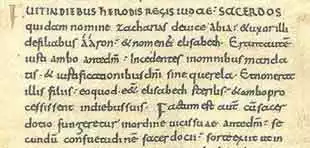 FUIT IN DIEBUS HERODIS REGIS IUDAE· SACERDOS
quidam nomine zacharias de uice abia· & uxor illi
de filiabus aaron· & nomen eius elisabeth· Erant autem
iusti ambo ante dm̄· Incedentes in omnibus manda
tis· & iustificationibus dnī sine querela· Et non erat
illis filius· eo quod ess& elisabeth sterilis· & ambo pro
cessissent in diebus suis· Factum est aut̄ cū sacer
dotio fungeretur in ordine uicis suae ante dm̄· se
cundū consuetudinē sacerdotii· sorte exiit ut in